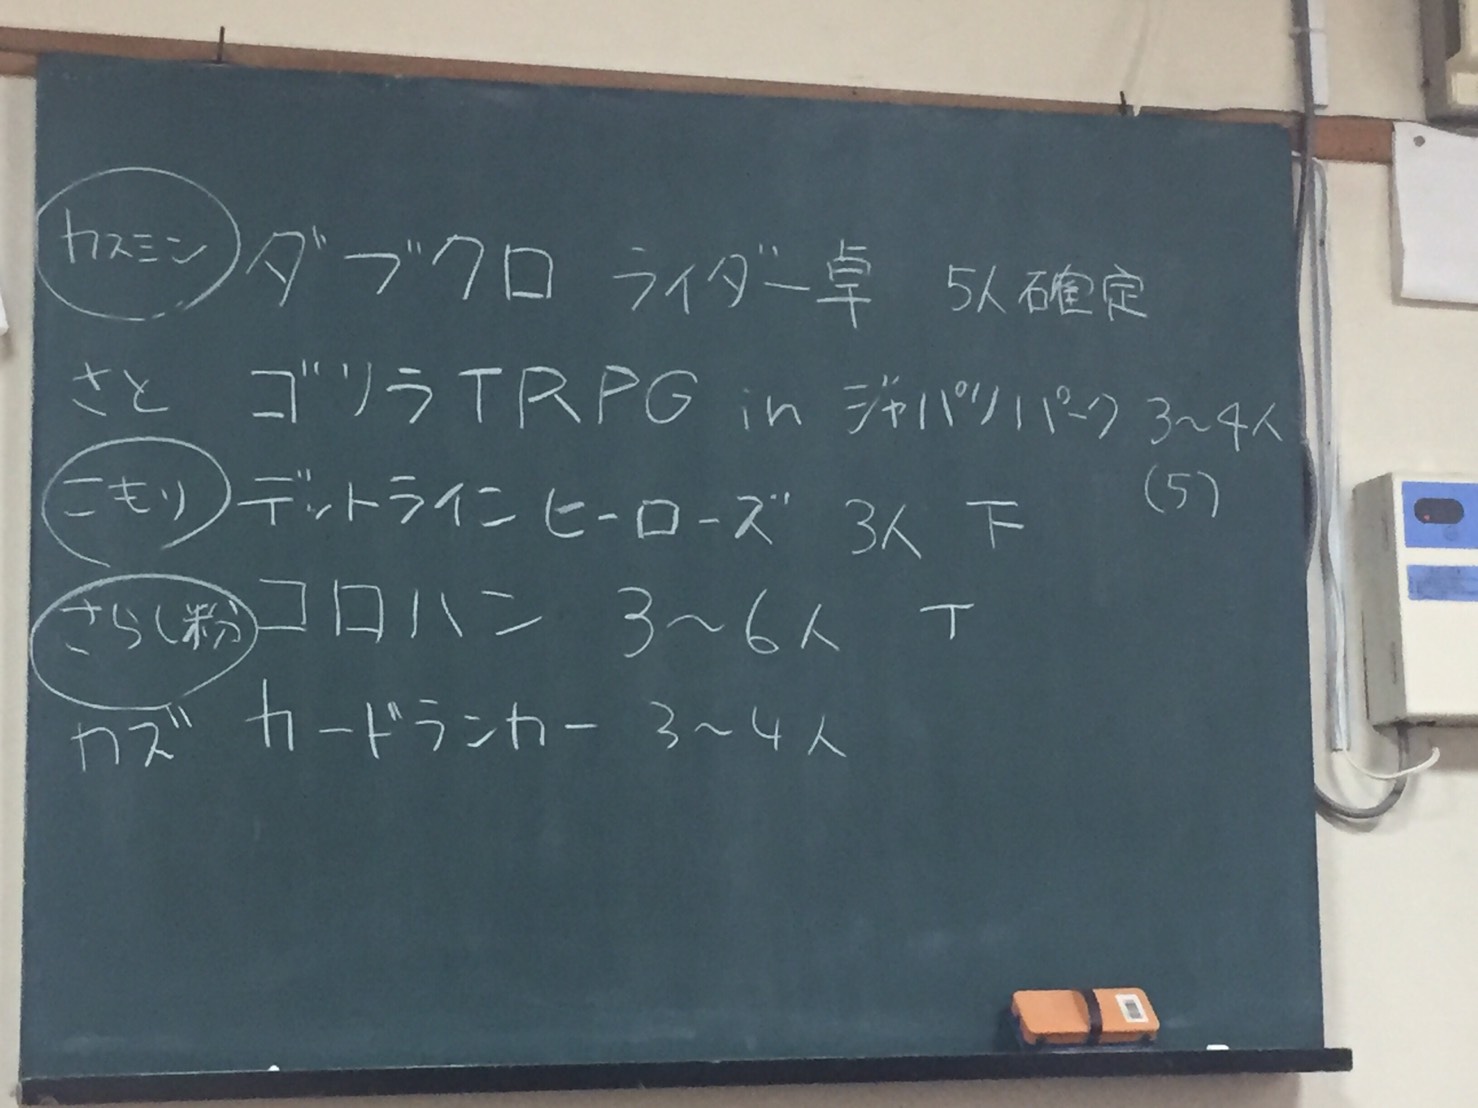 カスミン ダブクロ ライダー卓 5人確定
さと ゴリラTRPG in ジャパリパーク 3〜4人
(5)
こもり デットラインヒーローズ 3人 下
さらし粉 コロハン 3〜6人 T
カズ カードランカー 3〜4人